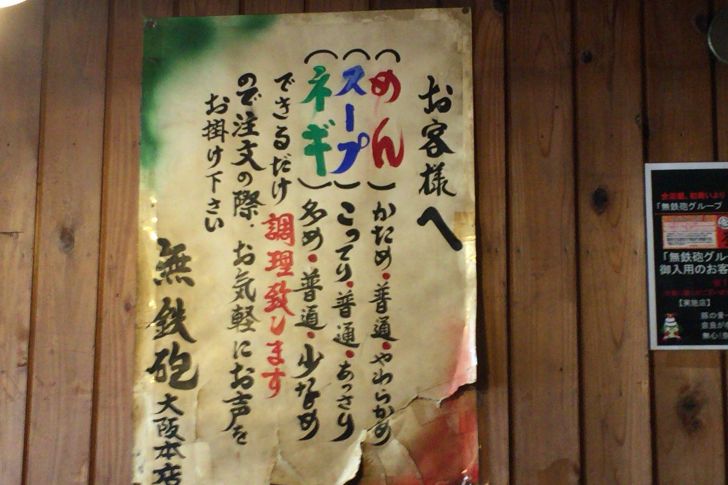 お客様へ
(めん)かため・普通・やわらかめ
(スープ)こってり・普通・あっさり
(ネギ)多め・普通・少なめ
できるだけ調理致します
ので注文の際、お気軽にお声を
お掛け下さい
無鉄砲大阪本店
「無鉄砲グループ
「無鉄砲グル
御入用のお客
【実施店】